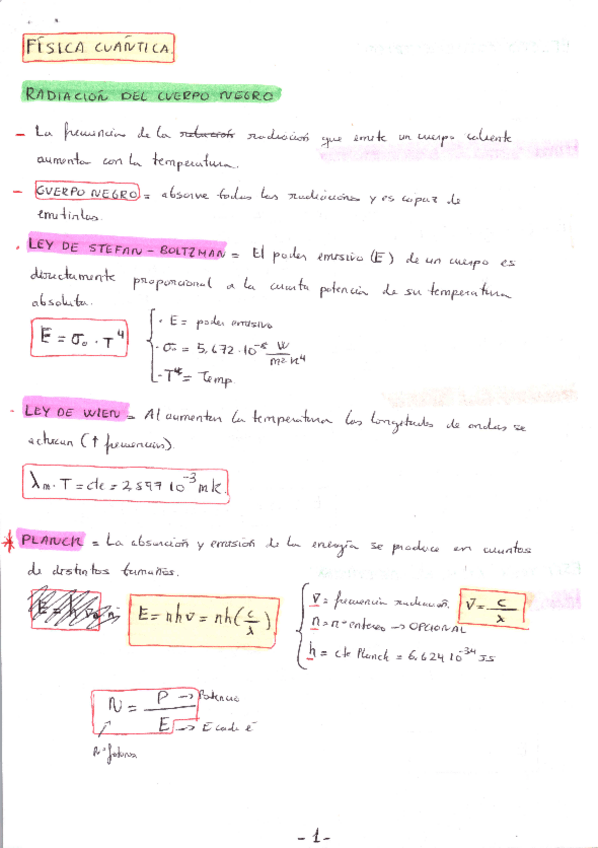 FÍSICA CUÁNTICA.
RADIACIÓN DEL CUERPO NEGRO
- La frecuencia de la radiación que emite un cuerpo caliente
aumenta con la temperatura.
- CUERPO NEGRO = absorve todas las radiaciones y es capaz de
emitirlas.
. LEY DE STEFAN-BOLTZMAN = El poder emisivo (E) de un cuerpo es
directamente proporcional a la cuarta potencia de su temperatura
absoluta.
E = σ₀ · T⁴
· E = poder emisivo
· σ₀ = 5,672 · 10⁻⁸ W/m²·K⁴
· T⁴ = Temp.
- LEY DE WIEN = Al aumentar la temperatura las longitudes de ondas se
achican (↑ frecuencias).
λm · T = cte = 2,897 10⁻³ mK.
* PLANCK = La absorción y emisión de la energía se produce en cuantos
de distintos tamaños.
E = nhν = nh(c/λ)
ν = frecuencia radiación. ν = c/λ
n = nº enteros → OPCIONAL
h = cte Planck = 6,624 10⁻³⁴ JS
N = P/E
P → Potencia
E → E cada é
nº fotones
- 1 -